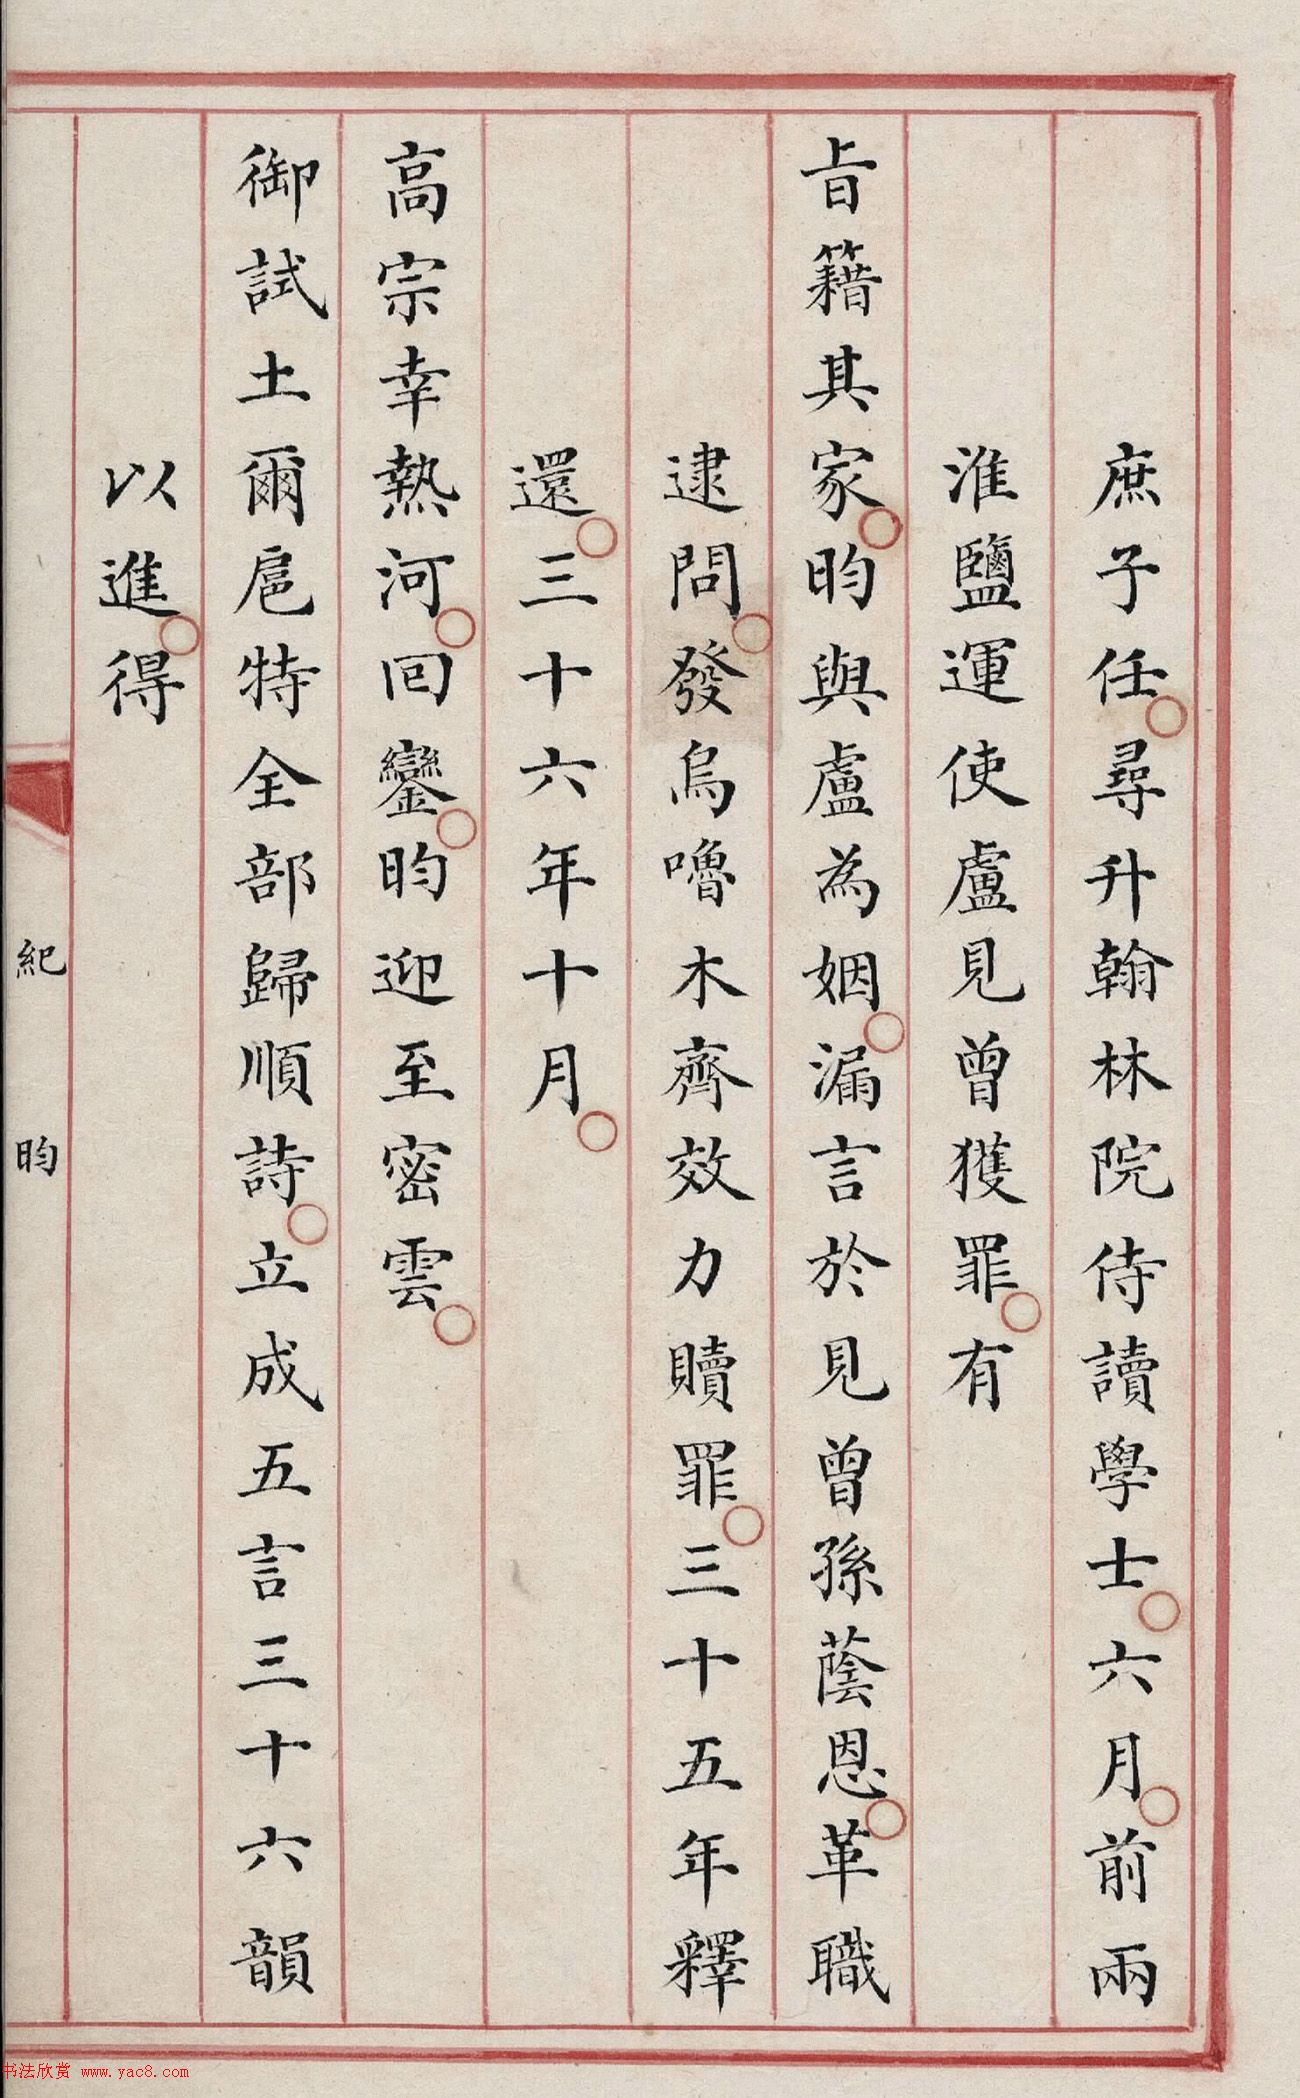 庶子任○尋升翰林院侍讀學士○六月○前兩
淮鹽運使盧見曾獲罪○有
旨籍其家○昀與盧為姻○漏言於見曾孫蔭恩○革職
逮問○發烏嚕木齊效力贖罪○三十五年釋
還○三十六年十月○
高宗幸熱河○回鑾○昀迎至密雲○
御試土爾扈特全部歸順詩○立成五言三十六韻
以進○得
紀昀
书法欣赏 www.yac8.com